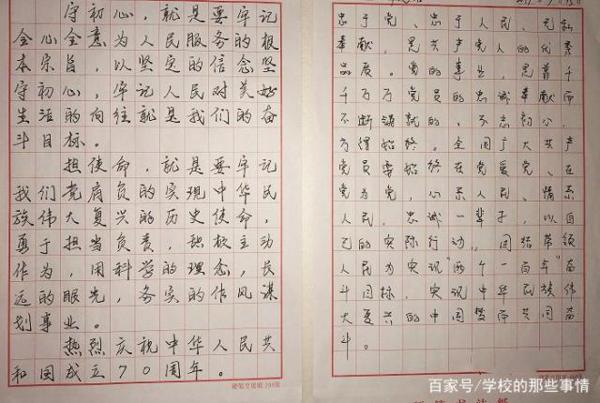 守初心，就是要牢记
全心全意为人民服务的根
本宗旨，以坚定的信念坚
守初心，牢记人民对美好
生活的向往就是我们的奋
斗目标。
担使命，就是要牢记
我们党肩负的实现中华民
族伟大复兴的历史使命，
勇于担当负责，积极主动
作为，用科学的理念，长
远的眼光，务实的作风谋
划事业。
热烈庆祝中华人民共
和国成立70周年。
忠于党、忠于人民、无私
奉献，是共产党人的优秀
品质。党的事业，是靠千
千万万党员的忠诚奉献而
不断铸就的。不忘初心，
方得始终。全国广大共产
党员要始终在党爱党、在
党为党，心系人民、情系
人民，忠诚一辈子，以自
己的实际行动，团结带领
人民为实现“两个一百年”奋
斗目标，实现中华民族伟
大复兴的中国梦而共同奋
斗。
百家号/学校的那些事情